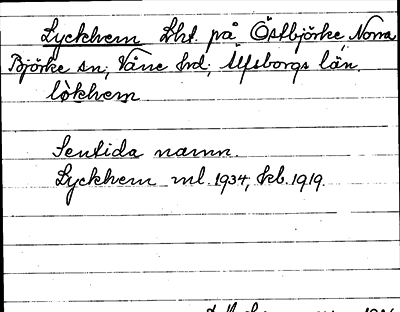 Lyckhem Lht. på Östbjörke, Norra
Björke sn; Väne hd; Älfsborgs län.
lòkhem
Sentida namn.
Lyckhem ml. 1934, kb. 1919.